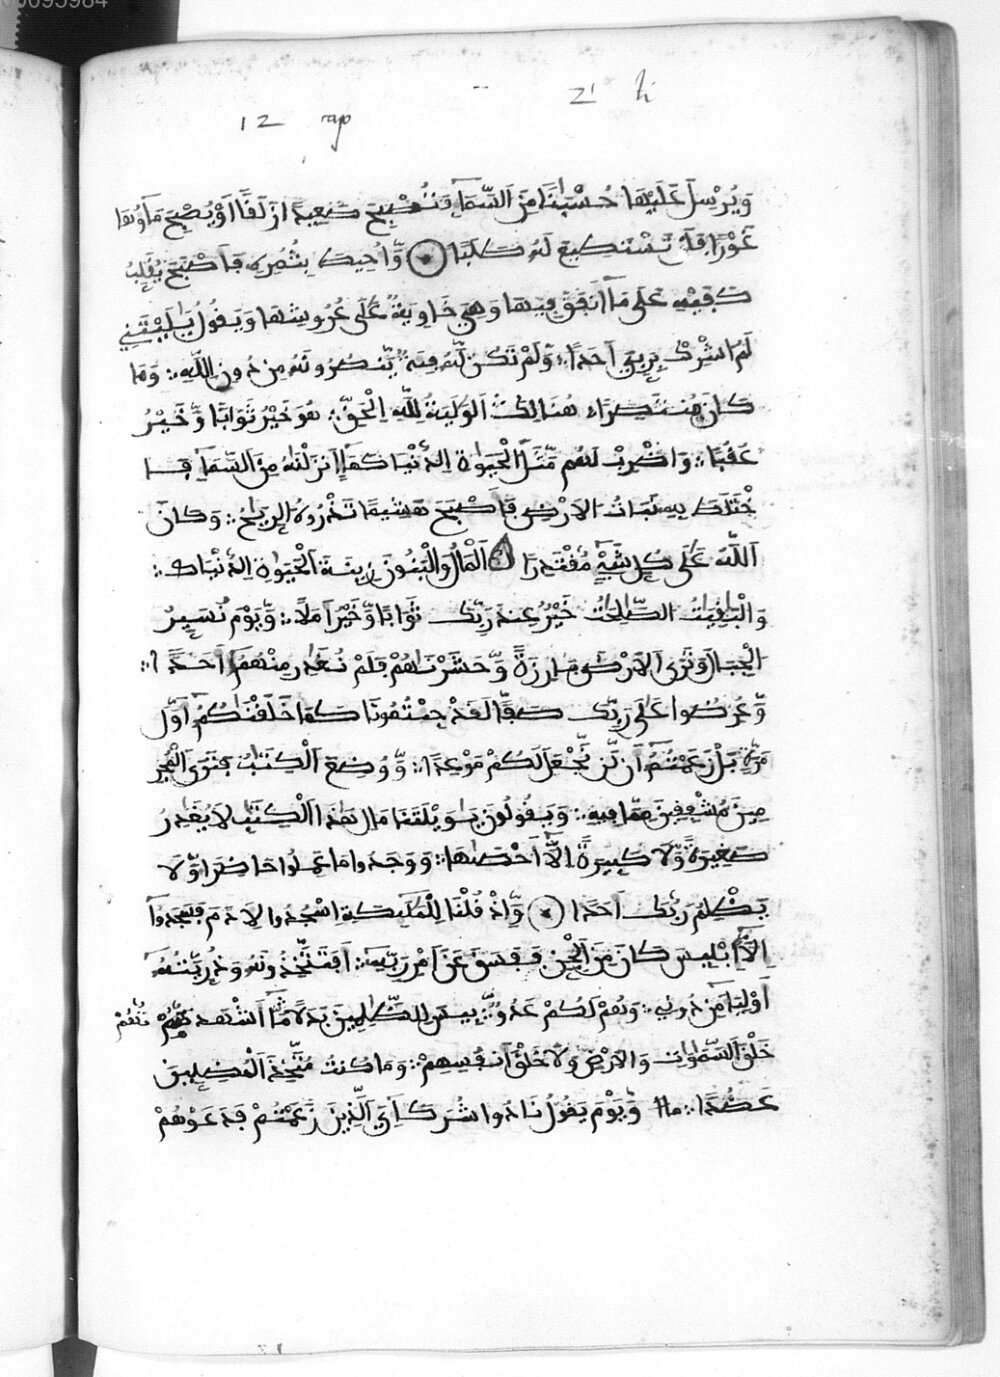 00095984
21 h
12 rap
وَيُرْسِلَ عَلَيْهَا حُسْبَٰنًا مِّنَ اَلسَّمَآءِ فَتُصْبِحَ صَعِيدًا زَلَفًا اَوْ يُصْبِحَ مَآؤُهَا
غَوْرًا فَلَن تَسْتَطِيعَ لَهُۥ طَلَبًا وَأُحِيطَ بِثُمُرِهِۦ فَأَصْبَحَ يُقَلِّبُ
كَفَّيْهِ عَلَىٰ مَآ أَنفَقَ فِيهَا وَهِىَ خَاوِيَةٌ عَلَىٰ عُرُوشِهَا وَيَقُولُ يَٰلَيْتَنِي
لَمُ اشْرِكْ بِرَبِّيَ أَحَدًا وَلَمْ تَكُن لَّهُۥ فِئَةٌ يَنصُرُونَهُۥ مِن دُونِ اِللَّهِ وَمَا
كَانَ مُنتَصِرًا هُنَالِكَ اَلْوَلَٰيَةُ لِلَّهِ اِلْحَقِّ هُوَ خَيْرٌ ثَوَابًا وَخَيْرٌ
عُقُبًا وَاضْرِبْ لَهُم مَّثَلَ اَلْحَيَوٰةِ اِلدُّنْيَا كَمَآءٍ اَنزَلْنَٰهُ مِنَ اَلسَّمَآءِ فَا
خْتَلَطَ بِهِۦ نَبَاتُ اُلَارْضِ فَأَصْبَحَ هَشِيمًا تَذْرُوهُ اُلرِّيَٰحُ وَكَانَ
اَللَّهُ عَلَىٰ كُلِّ شَيْءٍ مُّقْتَدِرًا اَلْمَالُ وَالْبَنُونَ زِينَةُ اَلْحَيَوٰةِ اِلدُّنْيَا
وَالْبَٰقِيَٰتُ اُلصَّٰلِحَٰتُ خَيْرٌ عِندَ رَبِّكَ ثَوَابًا وَخَيْرٌ اَمَلًا وَيَوْمَ نُسَيِّرُ
اُلْجِبَالَ وَتَرَى اَلَارْضَ بَارِزَةً وَحَشَرْنَٰهُمْ فَلَمْ نُغَادِرْ مِنْهُمُ أَحَدًا
وَعُرِضُوا عَلَىٰ رَبِّكَ صَفًّا لَّقَدْ جِئْتُمُونَا كَمَا خَلَقْنَٰكُمُ أَوَّلَ
مَرَّةٍ بَلْ زَعَمْتُمُ أَن لَّن نَّجْعَلَ لَكُم مَّوْعِدًا وَوُضِعَ اَلْكِتَٰبُ فَتَرَى اَلْمُجْرِ
مِينَ مُشْفِقِينَ مِمَّا فِيهِ وَيَقُولُونَ يَٰوَيْلَتَنَا مَالِ هَٰذَا اَلْكِتَٰبِ لَا يُغَادِرُ
صَغِيرَةً وَلَا كَبِيرَةً اِلَّآ أَحْصَىٰهَا وَوَجَدُوا مَا عَمِلُوا حَاضِرًا وَلَا
يَظْلِمُ رَبُّكَ أَحَدًا وَإِذْ قُلْنَا لِلْمَلَٰٓئِكَةِ اِسْجُدُوا لِأَدَمَ فَسَجَدُوٓا
إِلَّآ إِبْلِيسَ كَانَ مِنَ اَلْجِنِّ فَفَسَقَ عَنَ اَمْرِ رَبِّهِ أَفَتَتَّخِذُونَهُ وَذُرِّيَّتَهُۥٓ
أَوْلِيَآءَ مِن دُونِي وَهُمْ لَكُمْ عَدُوٌّ بِيسَ لِلظَّٰلِمِينَ بَدَلًا مَّآ أَشْهَدتُّهُمْ تُّهُمْ
خَلْقَ اَلسَّمَٰوَٰتِ وَالَارْضِ وَلَا خَلْقَ أَنفُسِهِمْ وَمَا كُنتُ مُتَّخِذَ اَلْمُضِلِّينَ
عَضُدًا وَيَوْمَ يَقُولُ نَادُوا شُرَكَآءِىَ اَلَّذِينَ زَعَمْتُمْ فَدَعَوْهُمْ